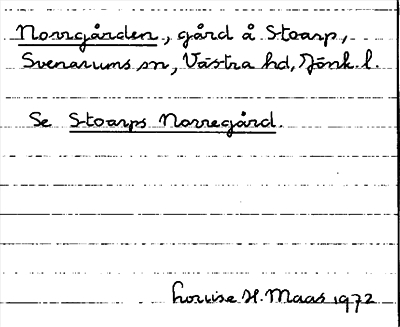 Norrgården, gård å Stoarp,
Svenarums sn, Västra hd, Jönk. l.
Se Stoarps Norregård.
Louise H. Maas 1972